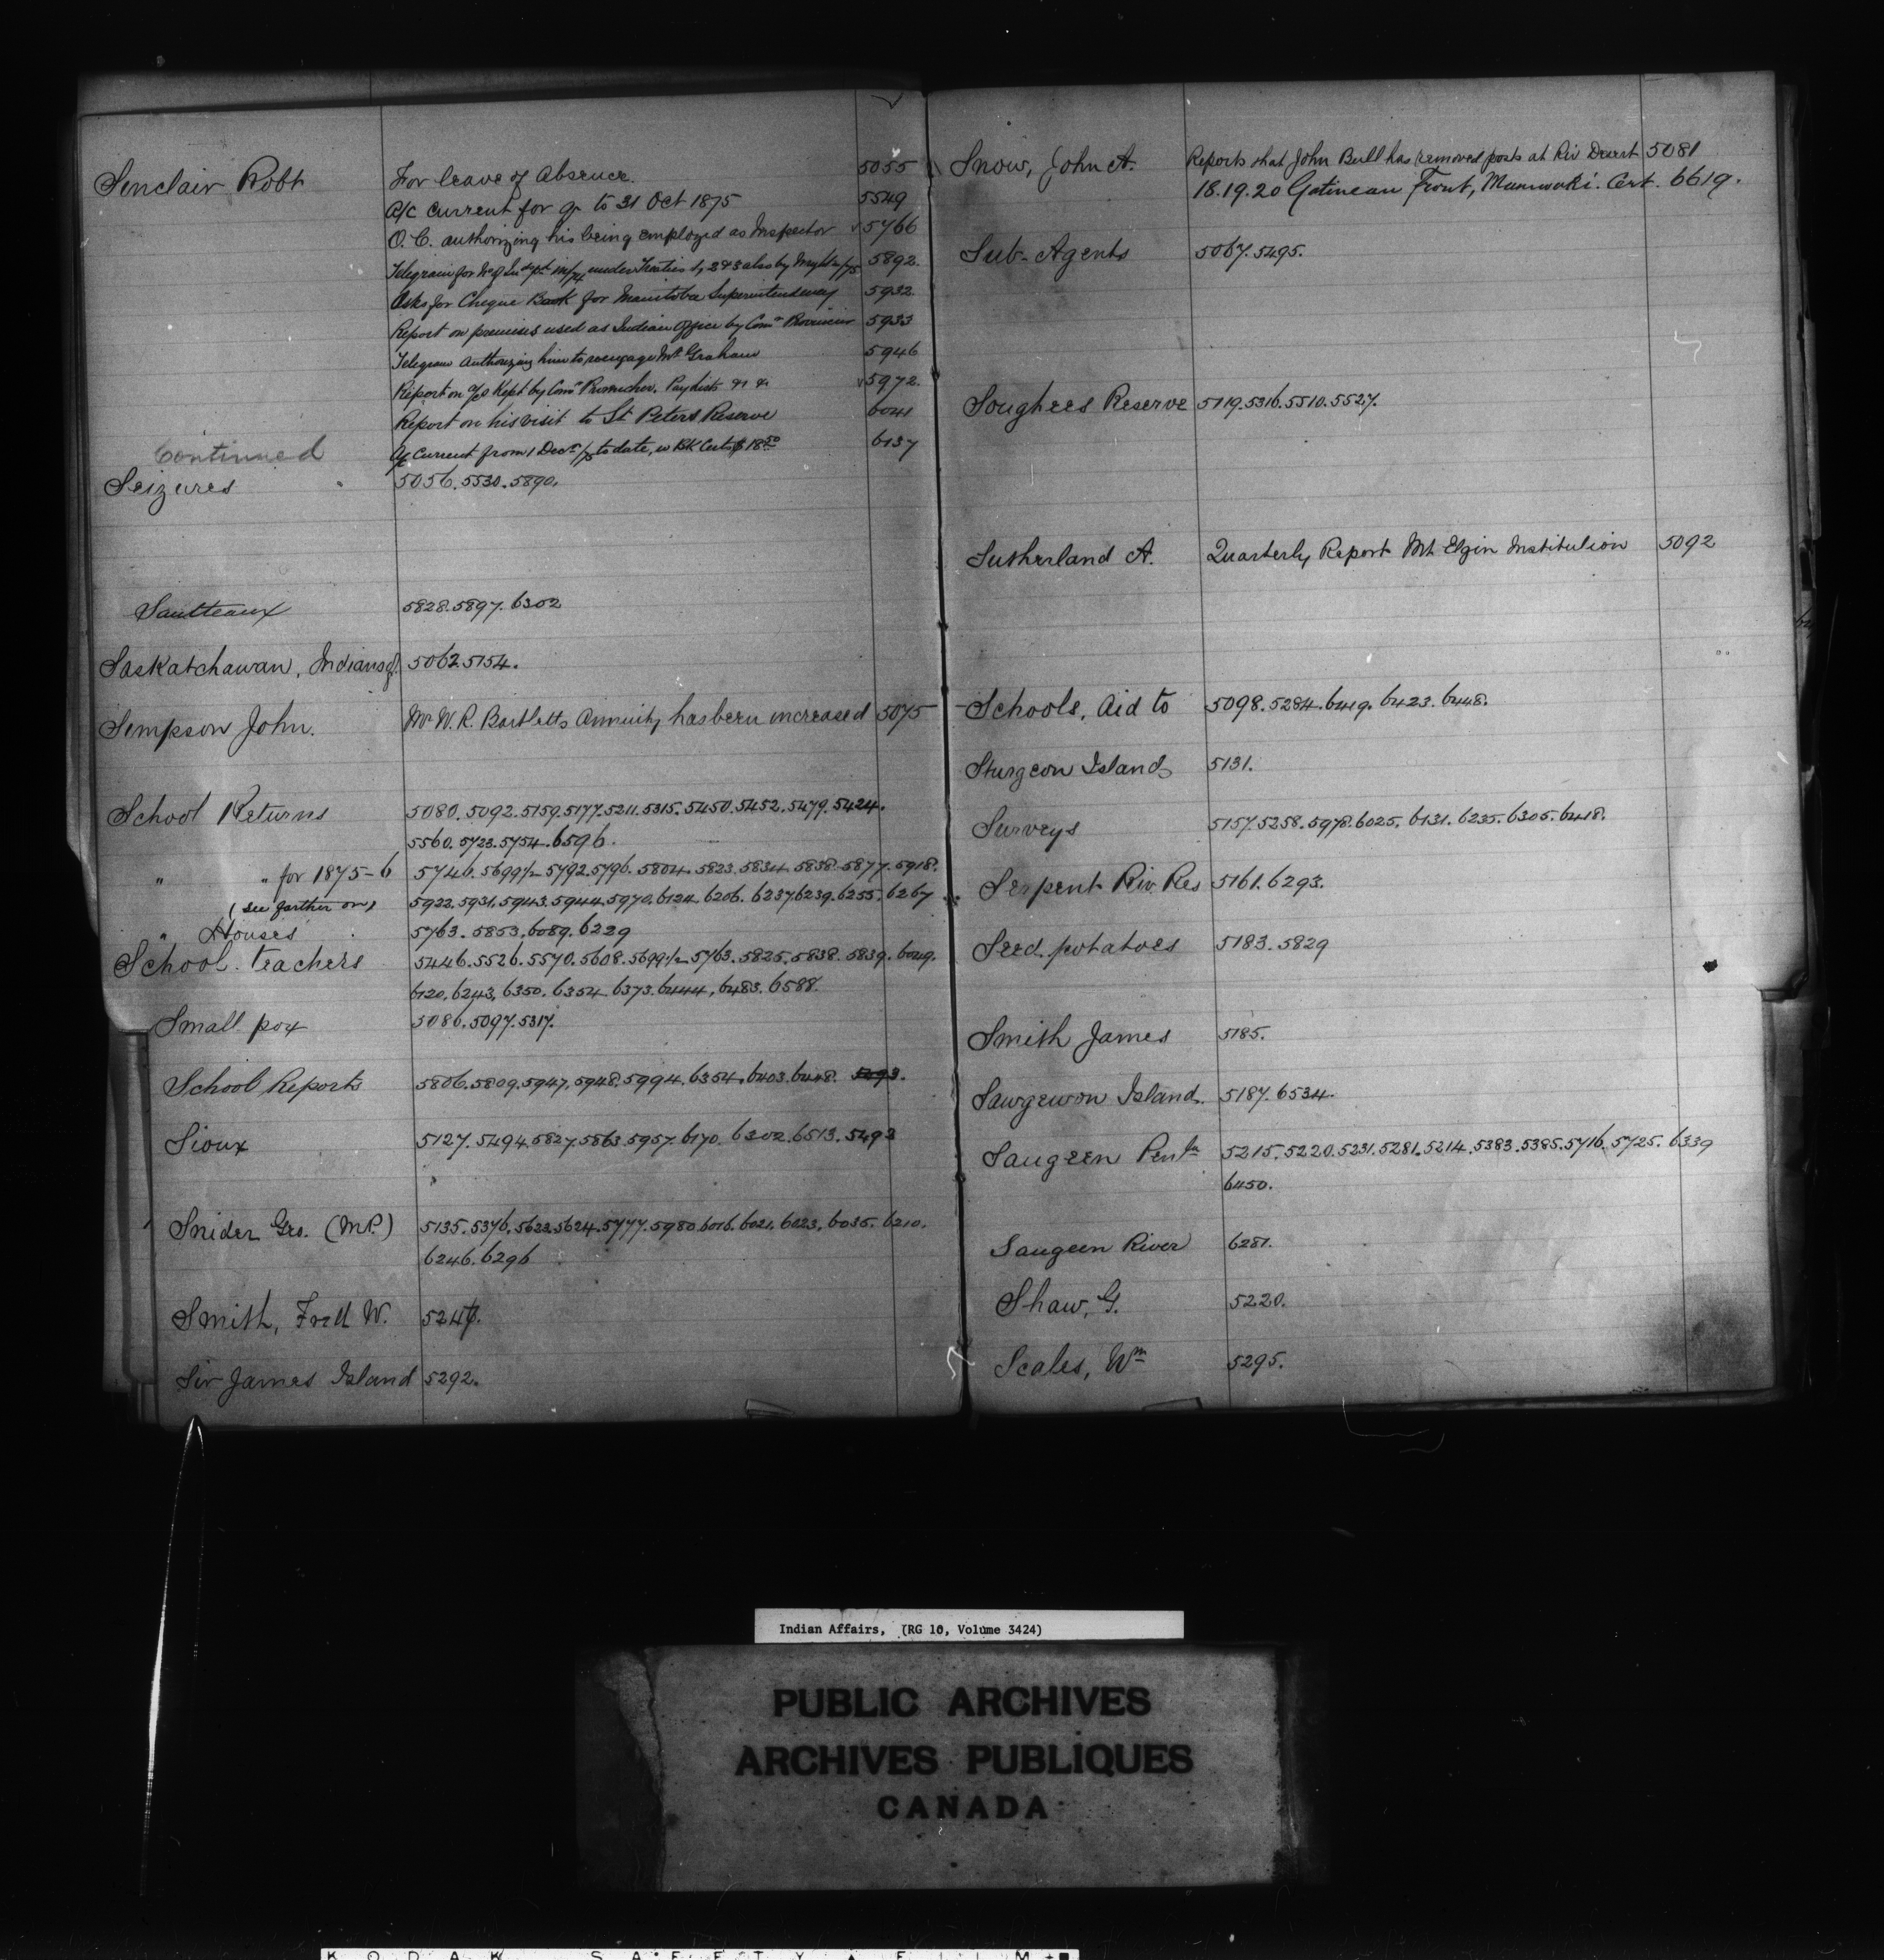 Sinclair Robt For leave of Absence. 5055
A/c Current for qr to 31 Oct 1875 5549
O.C. authorizing his being employed as Inspector 5766
Telegram for under Treaties 1, 2 & 3 also by 5892.
Asks for Cheque Book for Manitoba Superintendency 5932.
Report on premises used as Indian Office by Comr Provencher 5933
Telegram Authorizing him to reengage Mr Graham 5946
Report on a/cs Kept by Comr Provencher. Paylists &c &c 5972.
Report on his visit to St Peters Reserve 6041
Continued A/c Current from 1 Decr to date, w BK Certs $18.50 6137
Seizures 5056.5530.5890.
Saulteaux 5828.5897.6302
Saskatchawan, Indians of. 5062.5154.
Simpson John. Mr W.R. Bartletts Annuity has been increased 5075
School Returns 5080.5092.5159.5177.5211.5315.5450.5452.5479.5424.
5560.5723.5754.6596.
" " for 1875-6 5746.5699½.5792.5796.5804.5823.5834.5838.5877.5918.
(see farther on) 5922.5931.5943.5944.5970.6124.6206.6237.6239.6255.6267
" Houses 5763.5853.6089.6229
School teachers 5446.5526.5570.5608.5699½.5763.5825.5838.5839.6049.
6120.6243.6350.6354.6373.6444.6483.6588.
Small pox 5086.5097.5317.
School Reports 5806.5809.5947.5948.5994.6354.6403.6448.
Sioux 5127.5494.5827.5863.5957.6170.6302.6513.5493
Snider Geo. (M.P.) 5135.5376.5622.5624.5777.5980.6016.6021.6023.6035.6210.
6246.6296
Smith, Fred W. 5247.
Sir James Island 5292.
Snow, John A. Reports that John Bull has removed posts at Riv Desert 5081
18.19.20 Gatineau Front, Maniwaki. Cert. 6619.
Sub-Agents 5067.5495.
Songhees Reserve 5119.5316.5510.5527.
Sutherland A. Quarterly Report Mt Elgin Institution 5092
Schools, Aid to 5098.5284.6419.6423.6448.
Sturgeon Island 5131.
Surveys 5157.5258.5978.6025.6131.6235.6305.6418.
Serpent Riv. Res 5161.6293.
Seed potatoes 5183.5829
Smith James 5185.
Sawgewon Island 5187.6534.
Saugeen Penla 5215.5220.5231.5281.5214.5383.5385.5716.5725.6339
6450.
Saugeen River 6281.
Shaw, G. 5220.
Scales, Wm 5295.
Indian Affairs, (RG 10, Volume 3424)
PUBLIC ARCHIVES
ARCHIVES PUBLIQUES
CANADA
KODAK SAFETY FILM